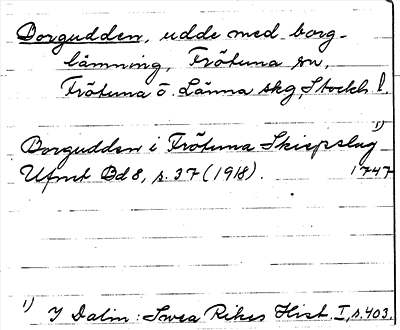 Borgudden, udde med borg-
lämning, Frötuna sn,
Frötuna o. Länna skg, Stockh. l.
Borgudden i Frötuna Skiepslag 1)
Ufmt Bd 8, s. 37 (1918). 1747
1) I Dalin: Svea Rikes Hist. I, s. 403.